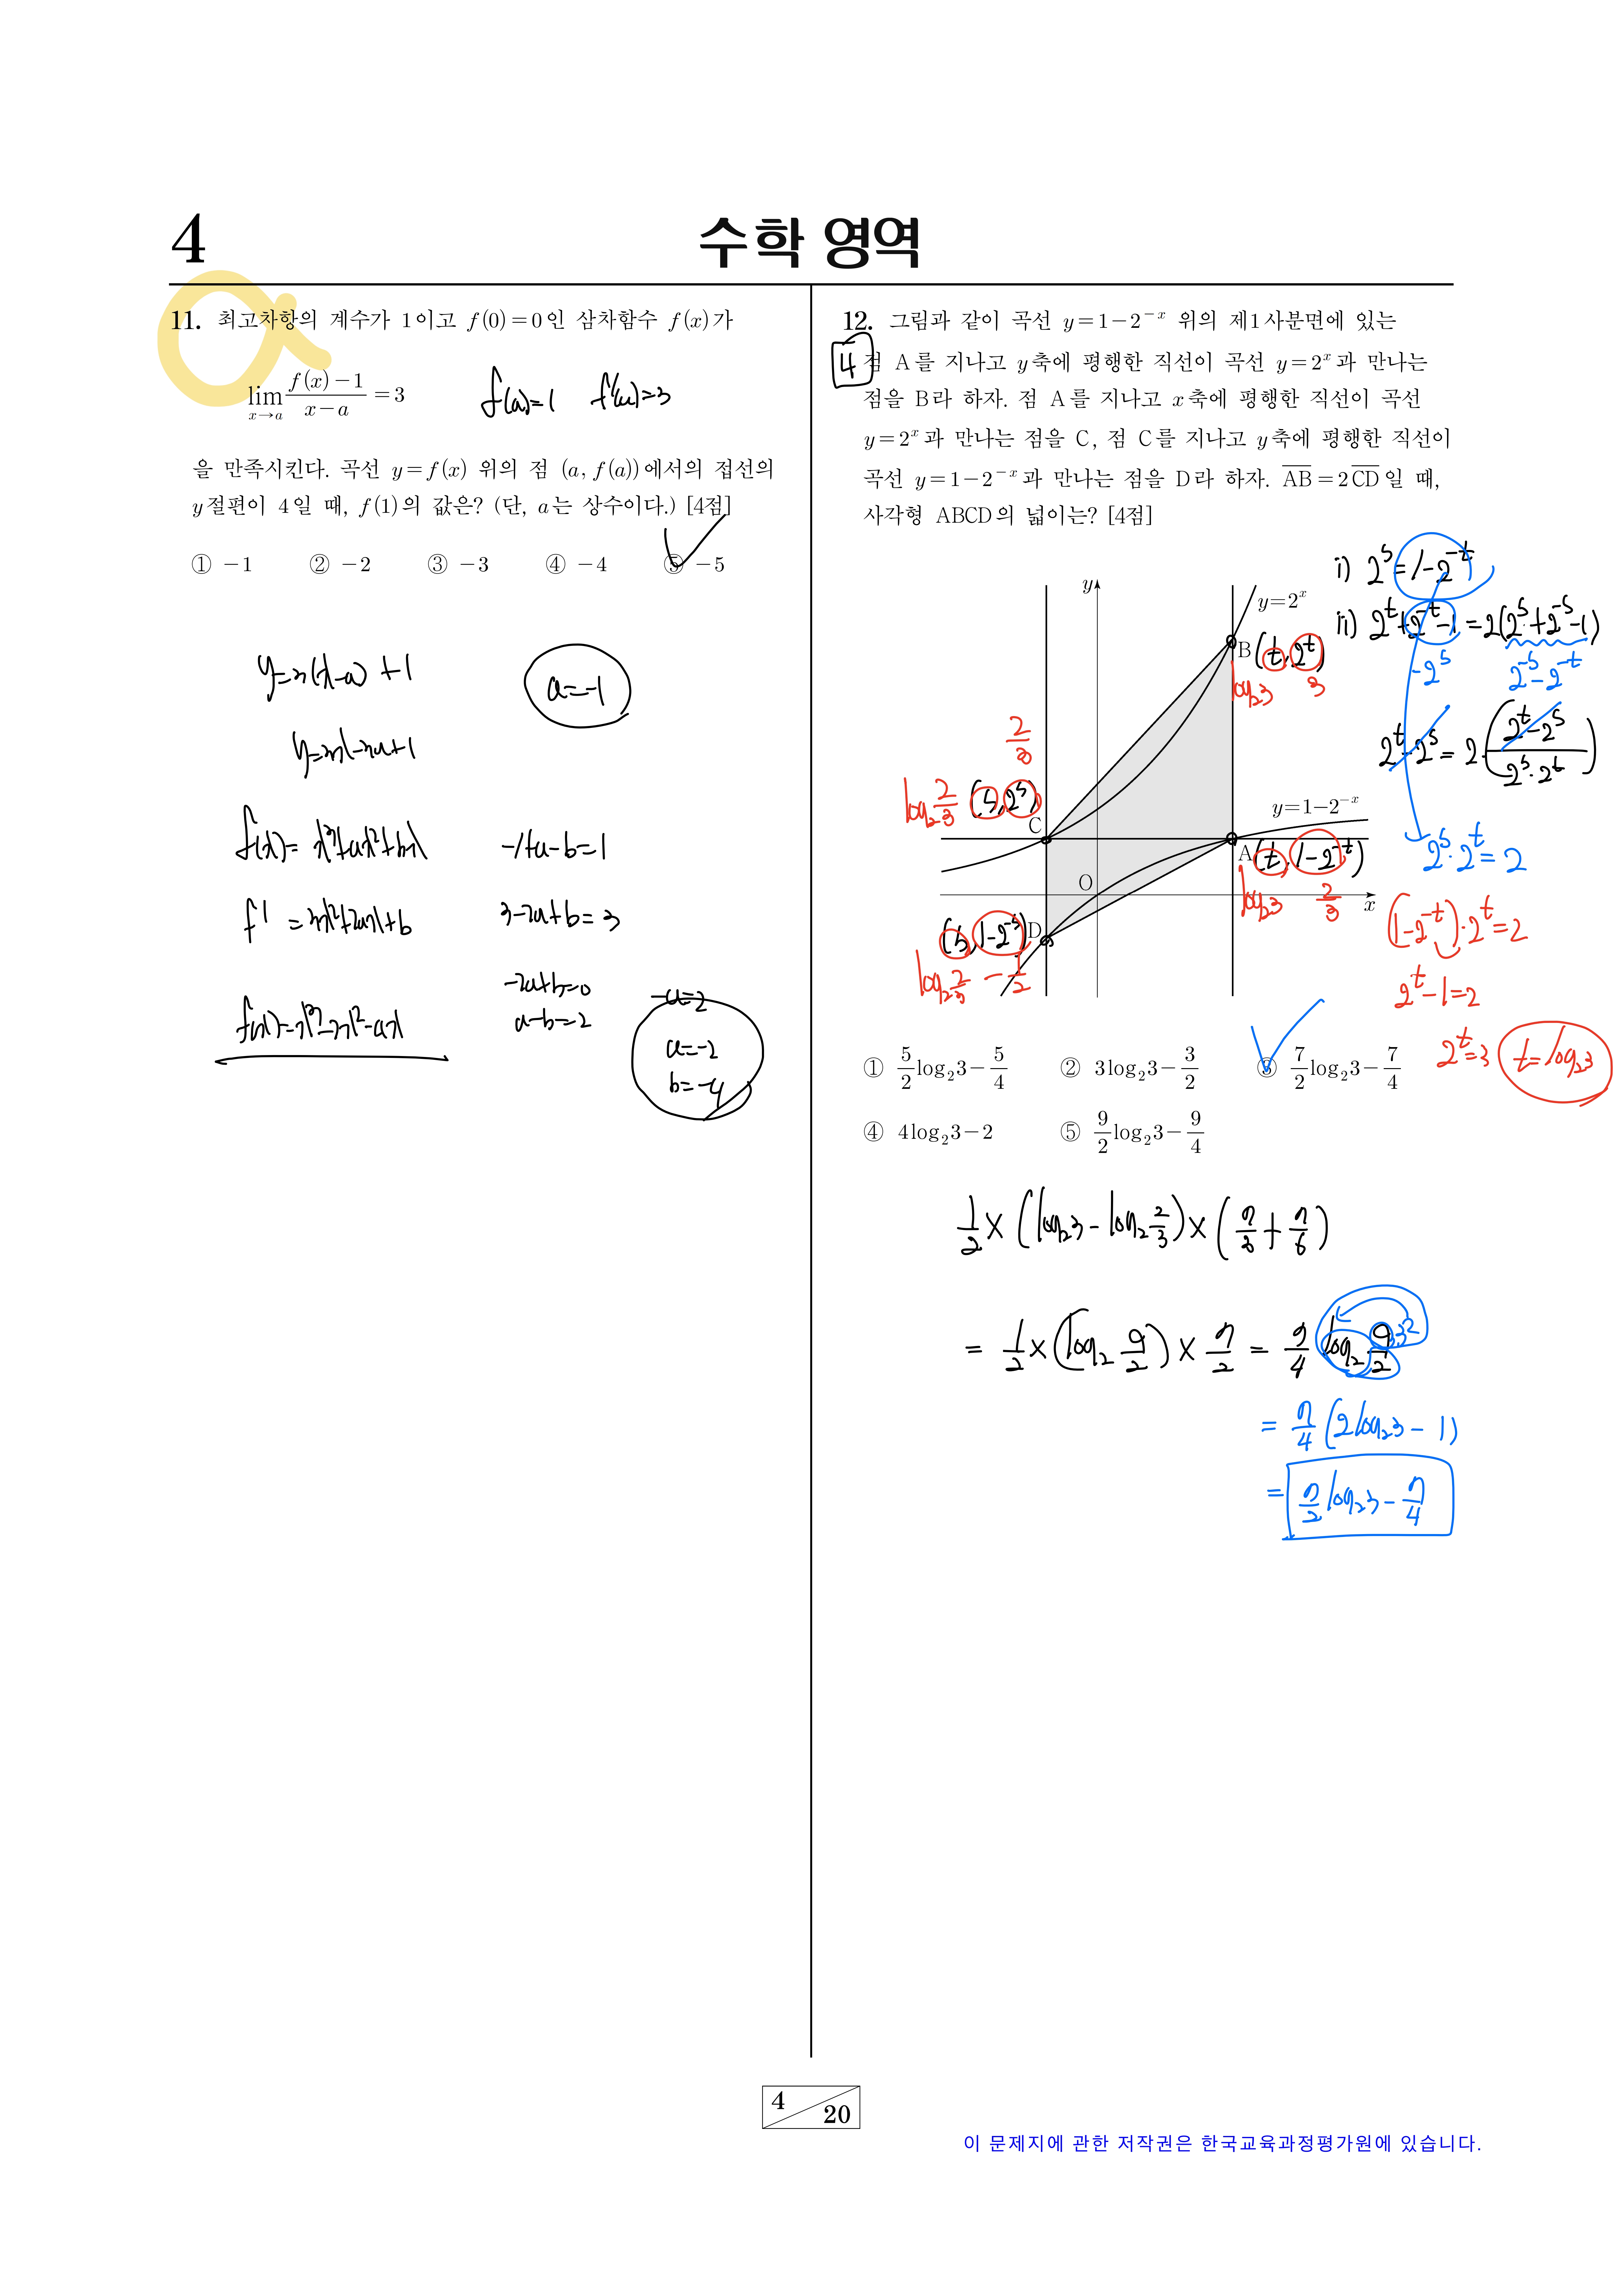 4
수학 영역
11. 최고차항의 계수가 1이고 f(0)=0인 삼차함수 f(x)가
lim_{x→a} (f(x)-1)/(x-a) = 3
f(a)=1 f'(a)=3
을 만족시킨다. 곡선 y=f(x) 위의 점 (a, f(a))에서의 접선의
y절편이 4일 때, f(1)의 값은? (단, a는 상수이다.) [4점]
① -1 ② -2 ③ -3 ④ -4 ⑤ -5
y=3(x-a)+1
a=-1
y=3x-3a+1
f(x)=x³+ax²+bx
-1+a-b=1
f' =3x²+2ax+b
3-2a+b=3
-2a+b=0
a-b=2
-a=2
a=-2
b=-4
12. 그림과 같이 곡선 y=1-2^{-x} 위의 제1사분면에 있는
4
점 A를 지나고 y축에 평행한 직선이 곡선 y=2^x과 만나는
점을 B라 하자. 점 A를 지나고 x축에 평행한 직선이 곡선
y=2^x과 만나는 점을 C, 점 C를 지나고 y축에 평행한 직선이
곡선 y=1-2^{-x}과 만나는 점을 D라 하자. AB=2CD일 때,
사각형 ABCD의 넓이는? [4점]
y
y=2^x
B (t, 2^t)
log₂3 3
2/3
log₂ 2/3 (s, 2^s)
C
y=1-2^{-x}
A (t, 1-2^{-t})
log₂3 2/3
O
x
(s, 1-2^{-s}) D
log₂ 2/3 -1/2
i) 2^s=1-2^{-t}
ii) 2^t+2^{-t}-1=2(2^s+2^{-s}-1)
-2^s 2^{-s}-2^{-t}
2^t-2^s=2·((2^t-2^s)/(2^s·2^t))
2^s·2^t=2
(1-2^{-t})·2^t=2
2^t-1=2
2^t=3 t=log₂3
① 5/2 log₂3 - 5/4 ② 3log₂3 - 3/2 ③ 7/2 log₂3 - 7/4
④ 4log₂3-2 ⑤ 9/2 log₂3 - 9/4
1/2 × (log₂3 - log₂ 2/3) × (7/3 + 7/6)
= 1/2 × (log₂ 9/2) × 7/2 = 7/4 log₂ 9/2 3²
= 7/4 (2log₂3 - 1)
= 7/2 log₂3 - 7/4
4 20
이 문제지에 관한 저작권은 한국교육과정평가원에 있습니다.